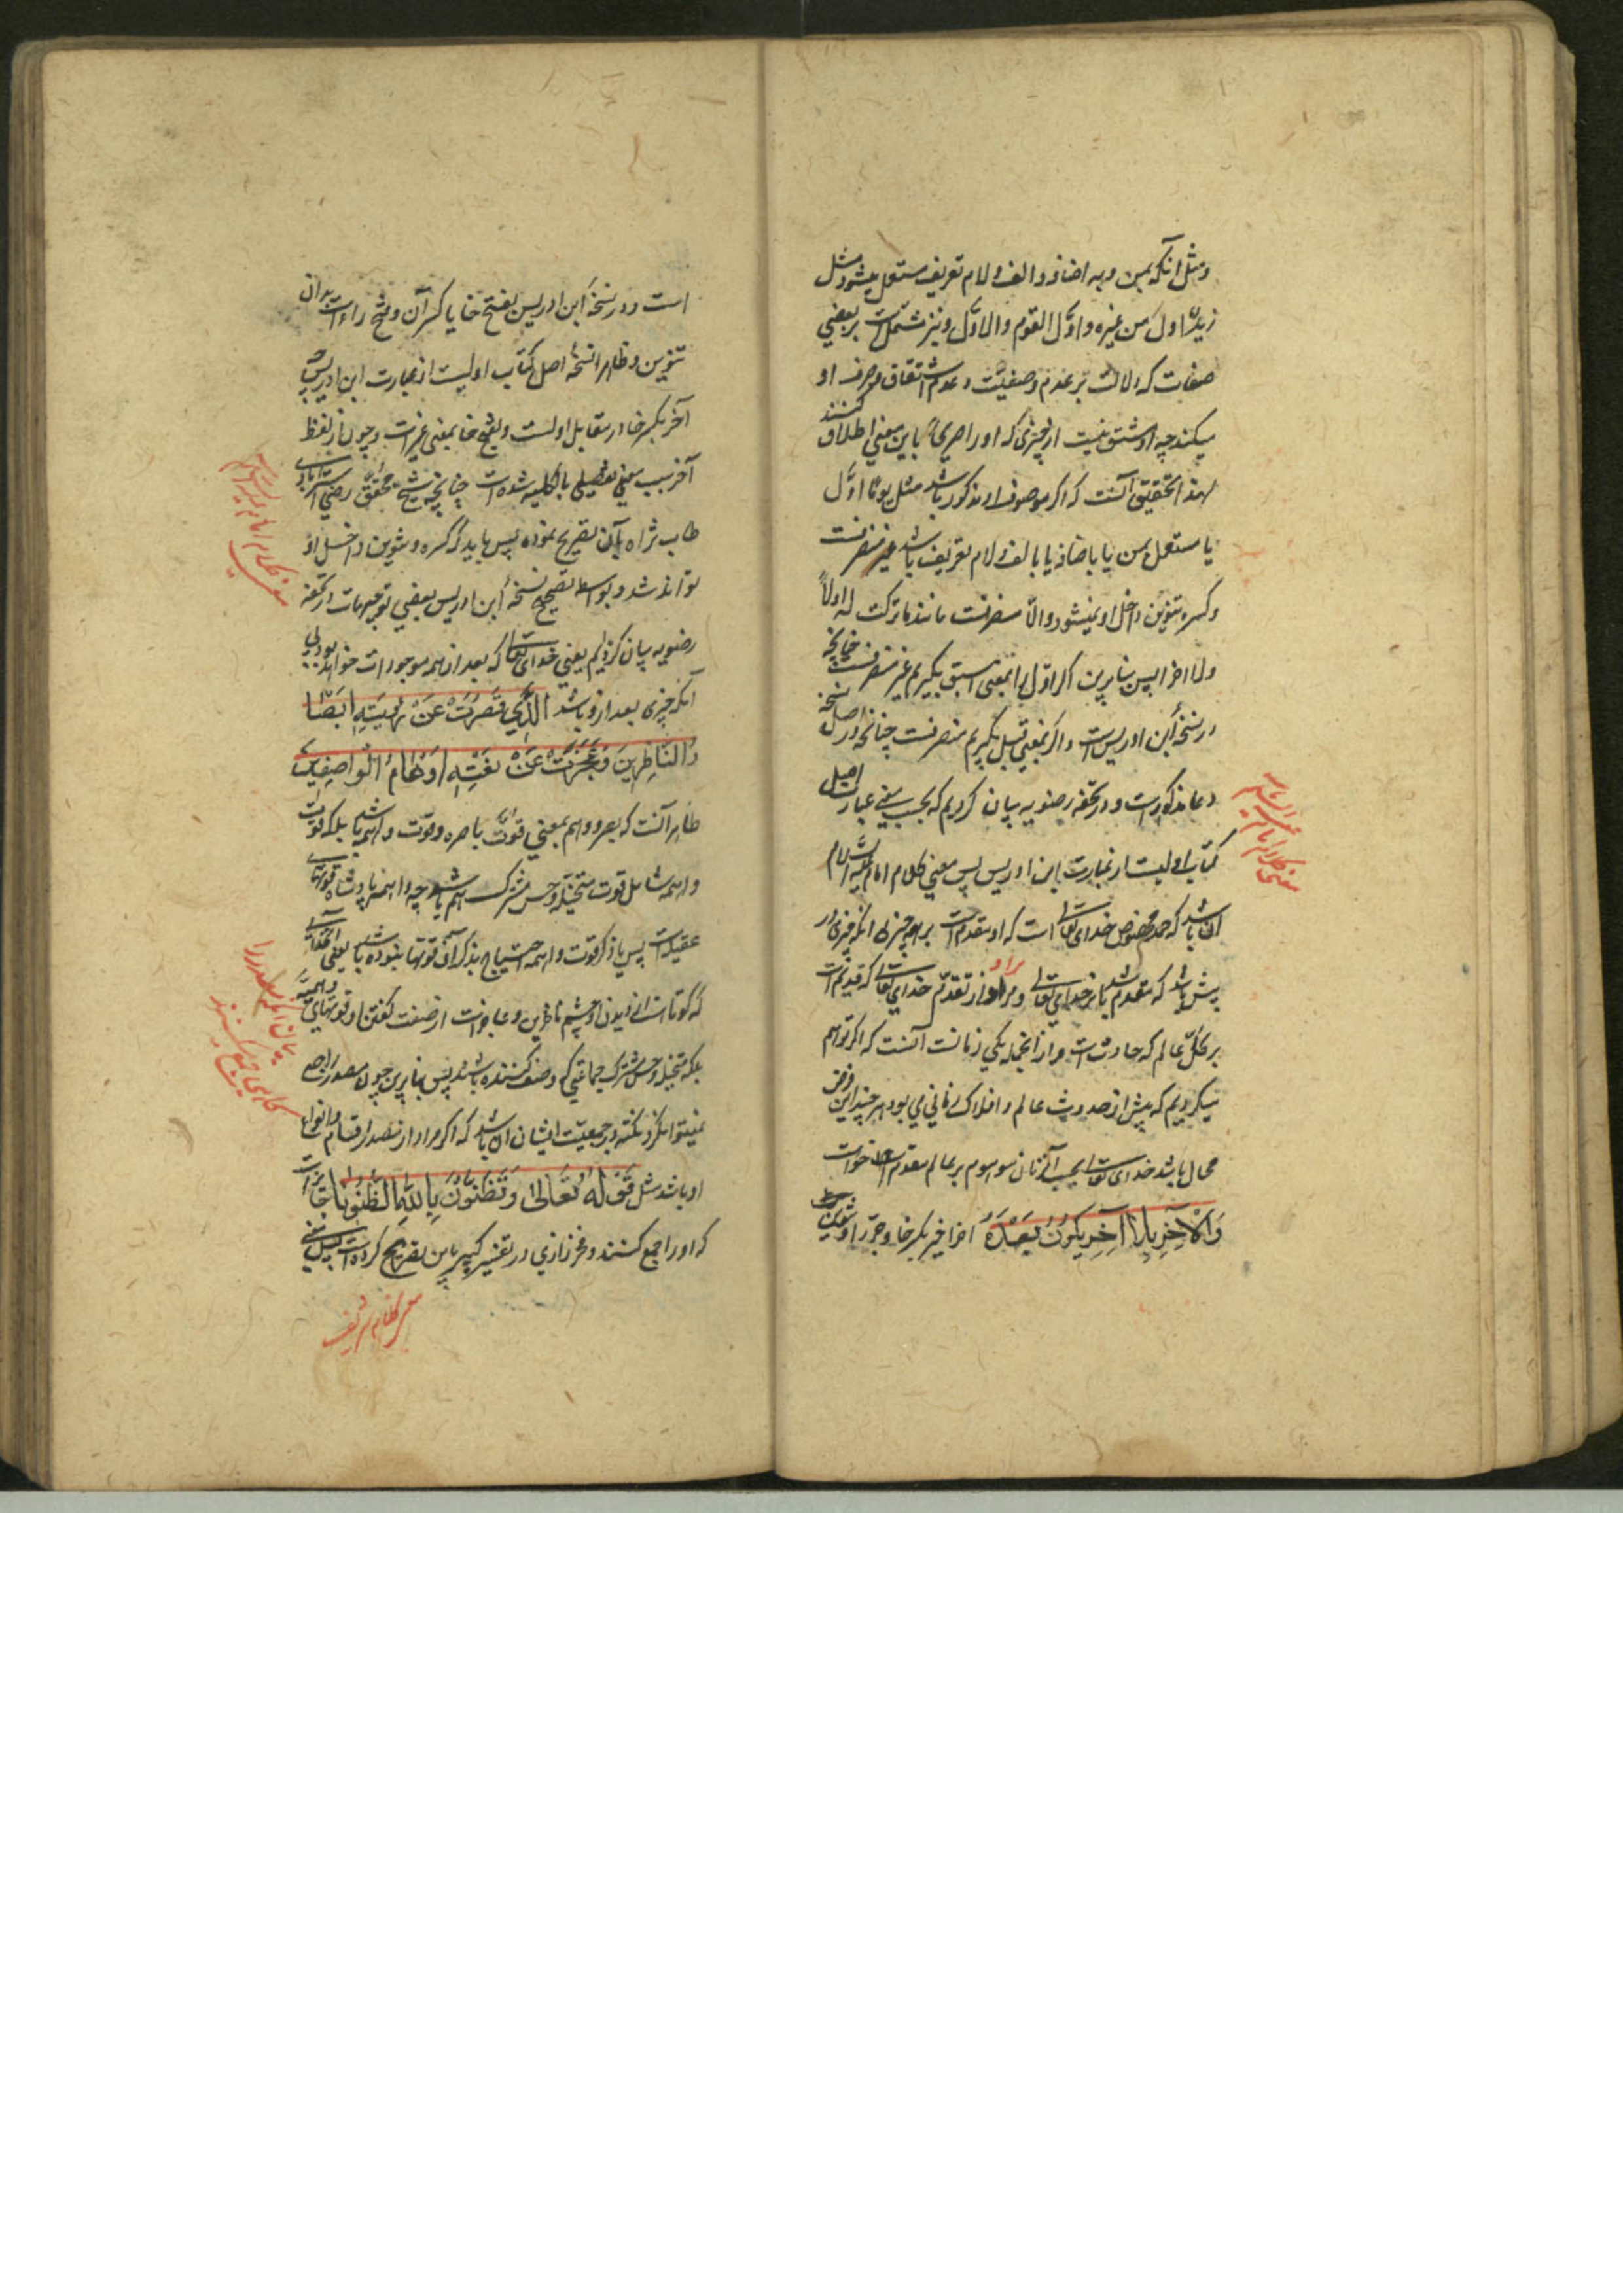 و مثل آنکه بمن و به اضافه و الف و لام تعریف مستعمل میشود مثل
زیدٌ اول من غیره و اوّل القوم و الاوّل و نیز مشتمل است بر بعضی
صفات که دلالت بر عدم وصفیّت و عدم اشتقاق و صرف او
میکند چه او مشتق نیست از چیزی که او را باین معنی اطلاق کنند
لهذا تحقیق آنست که اگر موصوف او مذکور باشد مثل یوما اوّل
یا مستعمل بمن یا باضافه یا بالف و لام تعریف باشد غیر منصرفست
و کسره و تنوین داخل او نمیشود و الّا منصرفست مانند ما ترکت له اولاً
و لا اخرا پس بنابرین اگر اوّل را بمعنی اسبق بگیریم غیر منصرفست چنانچه
در نسخهٔ ابن ادریس است و اگر بمعنی قبل بگیریم منصرفست چنانچه در اصل نسخه
دعا مذکورست و در تحفه رضویه بیان کردیم که بحسب معنی عبارت اصل
کتاب اولیست از عبارت ابن ادریس پس معنی کلام امام علیه السلام
آن باشد که حمد مخصوص خدای تعالی است که او مقدم است بر همه چیز بی آنکه چیزی در
پیش باشد که مقدم باشد بر خدای تعالی و مراد از تقدّم خدای تعالی که قدیم است
بر کلّ عالم که حادث است و از آنجمله یکی زمانست آنست که اگر توهم
میکردیم که پیش از حدوث عالم و افلاک زمانی می بود هر چند این فرض
محال باشد خدای تعالی بحسب آن زمان موهوم بر عالم مقدم خواست
وَالْآخِرِ بِلَا آخِرٍ یَکُونُ بَعْدَهُ اخر اخیر بکسر خا و جرّ را و تنوین
معنی کلام امام علیه السلام
است و در نسخهٔ ابن ادریس بفتح خا یا کسر آن و فتح راء است بدون
تنوین و ظاهرا نسخهٔ اصل کتاب اولیست از عبارت ابن ادریس چه
آخر بکسر خا در مقابل اولست و بفتح خا بمعنی غیر است و چون از لفظ
آخر سبب معنی تفضیلی بالکلیه شده است چنانچه شیخ محقق رضی استرابادی
طاب ثراه بآن تصریح نموده پس باید که کسره و تنوین داخل او
تواند شد و بواسطه تصحیح نسخهٔ ابن ادریس بعضی توجیهات در تحفه
رضویه بیان کردیم یعنی خدای تعالی که بعد از همه موجودات خواهد بود بی
آنکه چیزی بعد از و باشد الَّذِی قَصُرَتْ عَنْ رُؤْیَتِهِ اَبْصَارُ
النَّاظِرِینَ وَعَجَزَتْ عَنْ نَعْتِهِ اَوْهَامُ الْوَاصِفِینَ
ظاهر آنست که بصر و وهم بمعنی قوّت باصره و قوّت واهمه باشد بلکه قوت
واهمه شامل قوت متخیله و حس مشترک هم باشد چه واهمه پادشاه قوتهای
عقیلست پس با ذکر قوت واهمه احتیاج بذکر آن قوتها نبوده باشد یعنی آنخدائی
که کوتاه است از دیدن او چشم ناظرین و عاجز است از صفت گفتن او قوتهای وهمیّه
بلکه متخیله و حس مشترک جماعتی که وصف کننده باشند پس بنابرین چون مصدر را جمع
نمیتوان کرد نکته در جمعیّت ایشان آن باشد که اگر مراد از مصدر اقسام و انواع
او باشد مثل قَوْلُهُ تَعَالٰی وَتَظُنُّونَ بِاللّٰهِ الظُّنُونَا جایز است
که او را جمع کنند و فخر رازی در تفسیر کبیر باین تصریح کرده است پس معنی
معنی کلام امام علیه السلام
بیان آنکه مصدر را
گاهی جمع میکنند
معنی کلام شریف